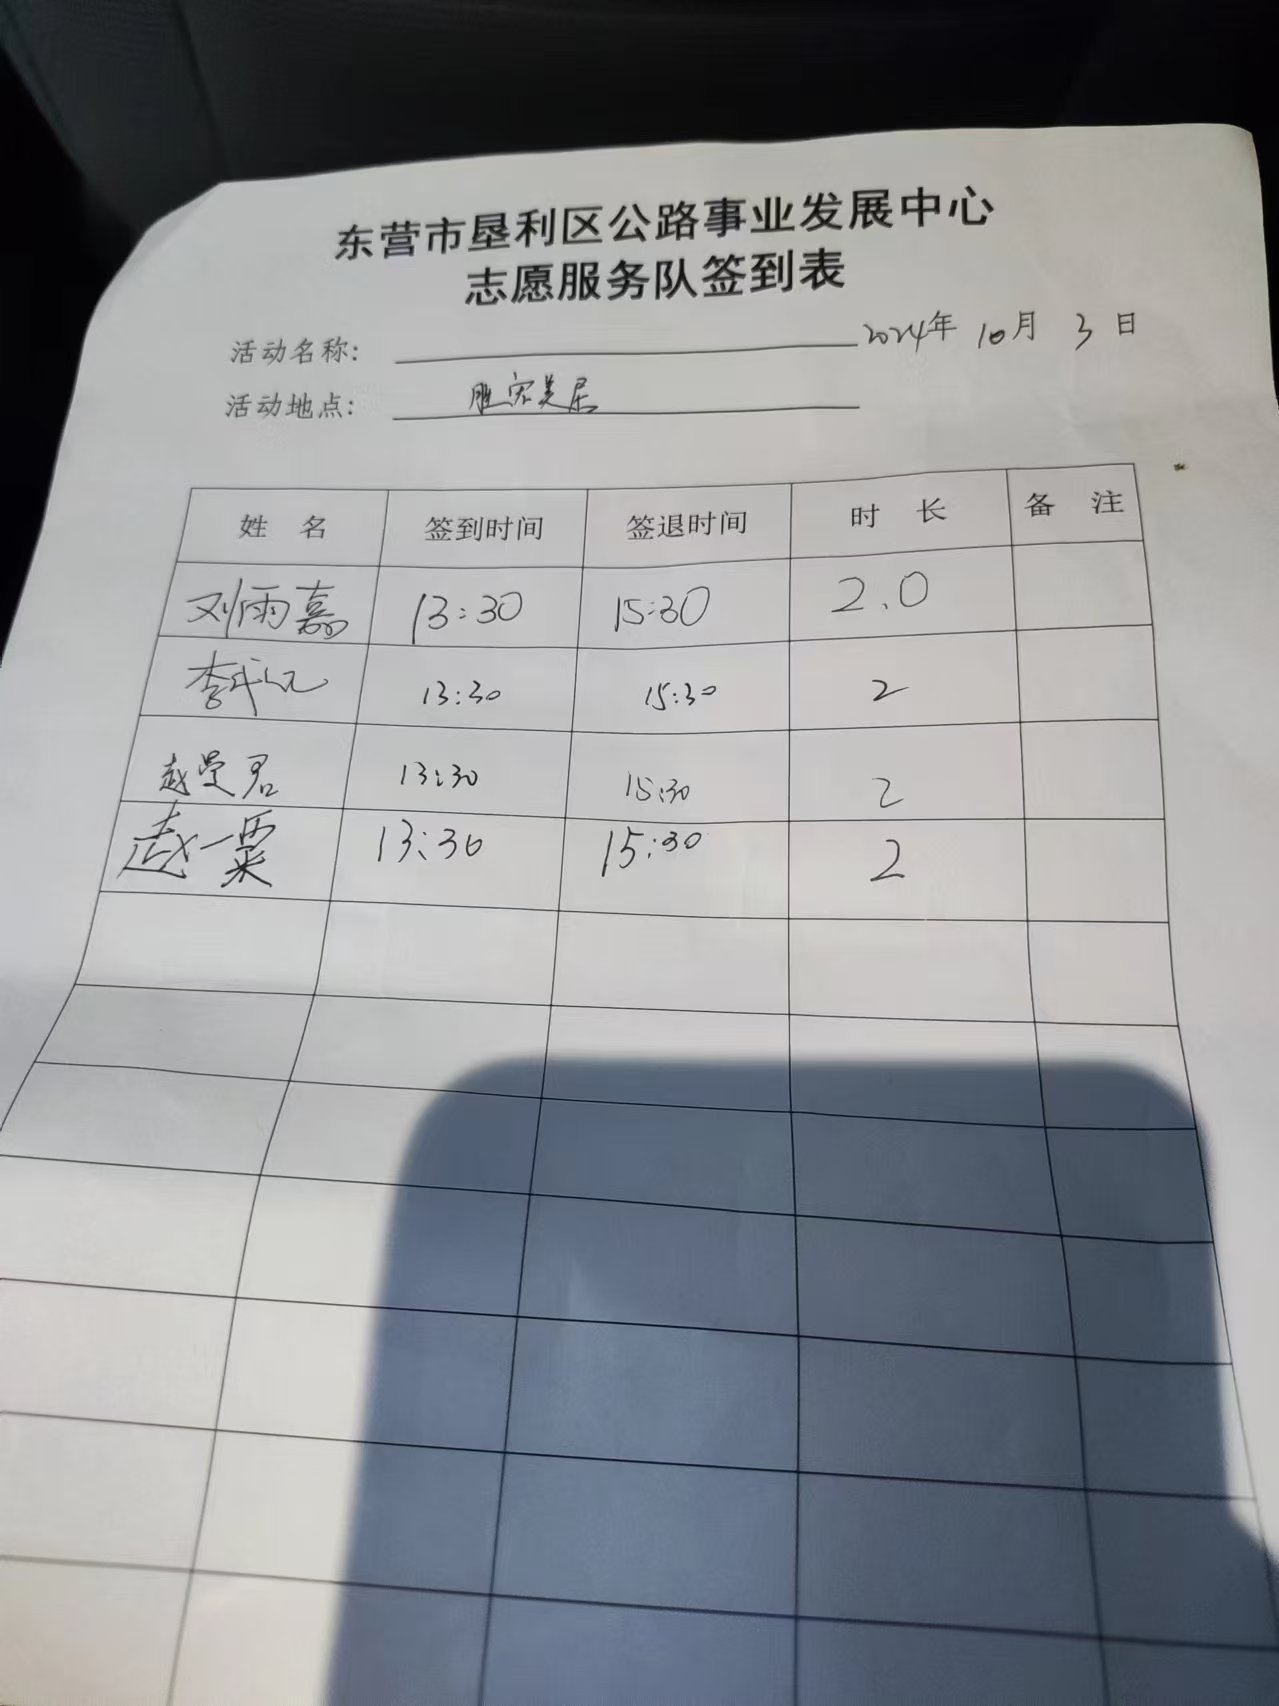 东营市垦利区公路事业发展中心
志愿服务队签到表
活动名称: 2024年 10月 3日
活动地点: 胜宏美居
姓 名 签到时间 签退时间 时 长 备 注
刘雨嘉 13:30 15:30 2.0
李 13:30 15:30 2
赵曼君 13:30 15:30 2
赵一粟 13:30 15:30 2